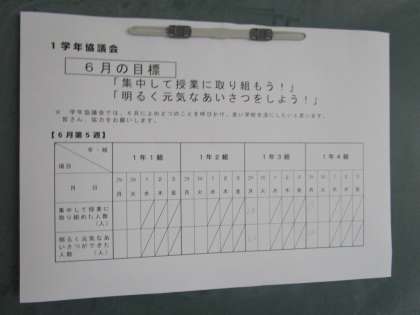 １学年協議会
６月の目標
「集中して授業に取り組もう！」
「明るく元気なあいさつをしよう！」
※ 学年協議会では、６月に上の２つのことを呼びかけ、良い学校生活にしたいと思います。
皆さん、協力をお願いします。
【６月第５週】
年・組
項目
１年１組 １年２組 １年３組 １年４組
月 日 29 30 1 2 3 29 30 1 2 3 29 30 1 2 3 29 30 1 2 3
月 火 水 木 金 月 火 水 木 金 月 火 水 木 金 月 火 水 木 金
集中して授業に
取り組めた人数
（人）
明るく元気なあ
いさつができた
人数 （人）